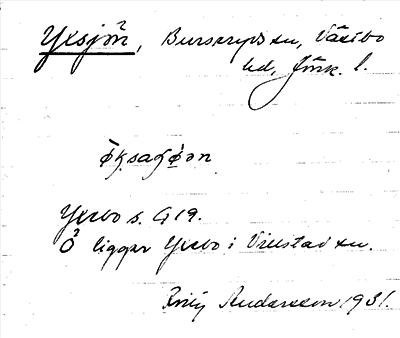 Yxsjön, Burseryds sn, Västbo
hd, Jönk. l.
Yxabo s. G 19.
Ö liggar Yxabo i Villstad sn.
Andersson 1931.